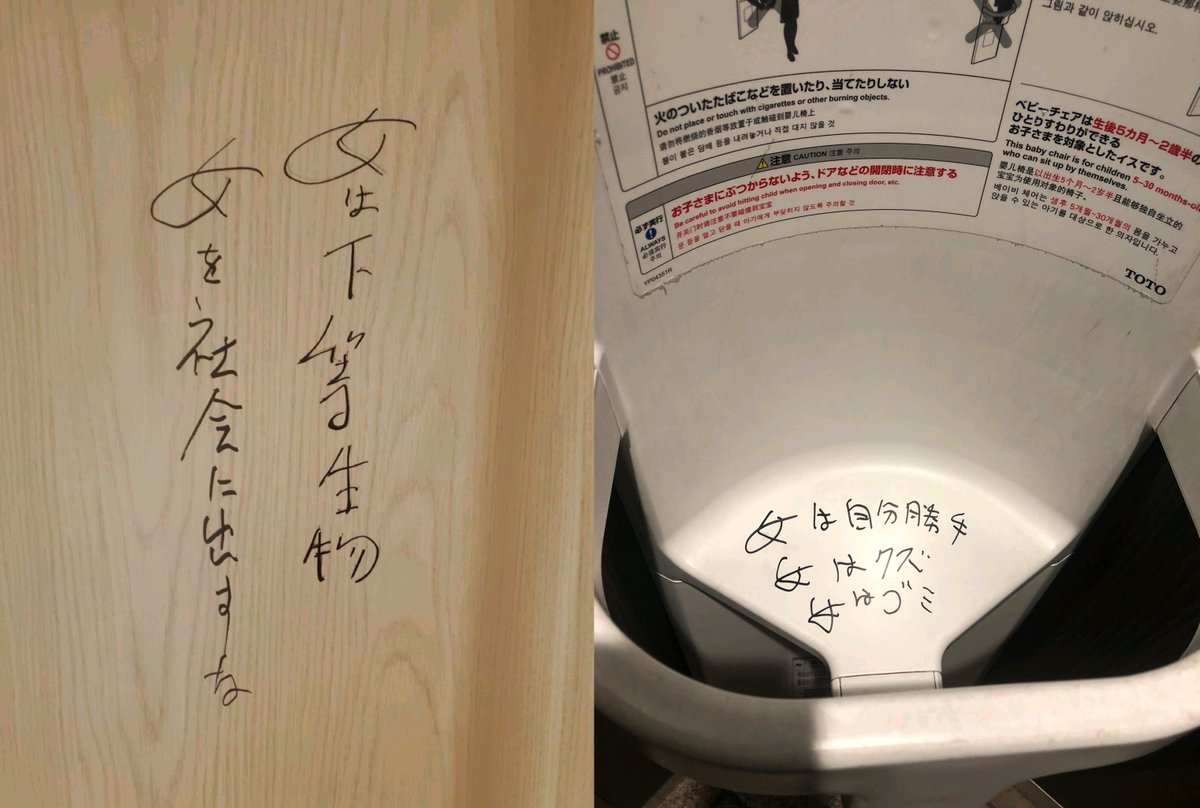 女は下等生物
女を社会に出すな
禁止
PROHIBITED
禁止
금지
火のついたたばこなどを置いたり、当てたりしない
Do not place or touch with cigarettes or other burning objects.
请勿将燃烧的香烟等放置于或触碰到婴儿椅上
불이 붙은 담배 등을 내려놓거나 직접 대지 않을 것
注意 CAUTION 注意 주의
必ず実行
ALWAYS
必须实行
お子さまにぶつからないよう、ドアなどの開閉時に注意する
Be careful to avoid hitting child when opening and closing door, etc.
开关门时请注意不要碰撞到宝宝
문 등을 열고 닫을 때 아기에게 부딪히지 않도록 주의할 것
YP04351R
그림과 같이 앉히십시오.
ベビーチェアは生後5カ月〜2歳半の
ひとりすわりができる
お子さまを対象としたイスです。
This baby chair is for children 5–30 months-old
who can sit up by themselves.
婴儿椅是以出生5个月〜2岁半且能够独自坐立的
宝宝为使用对象的椅子。
베이비 체어는 생후 5개월~30개월의 몸을 가누고
앉을 수 있는 아기를 대상으로 한 의자입니다.
TOTO
女は自分勝手
女はクズ
女はゴミ